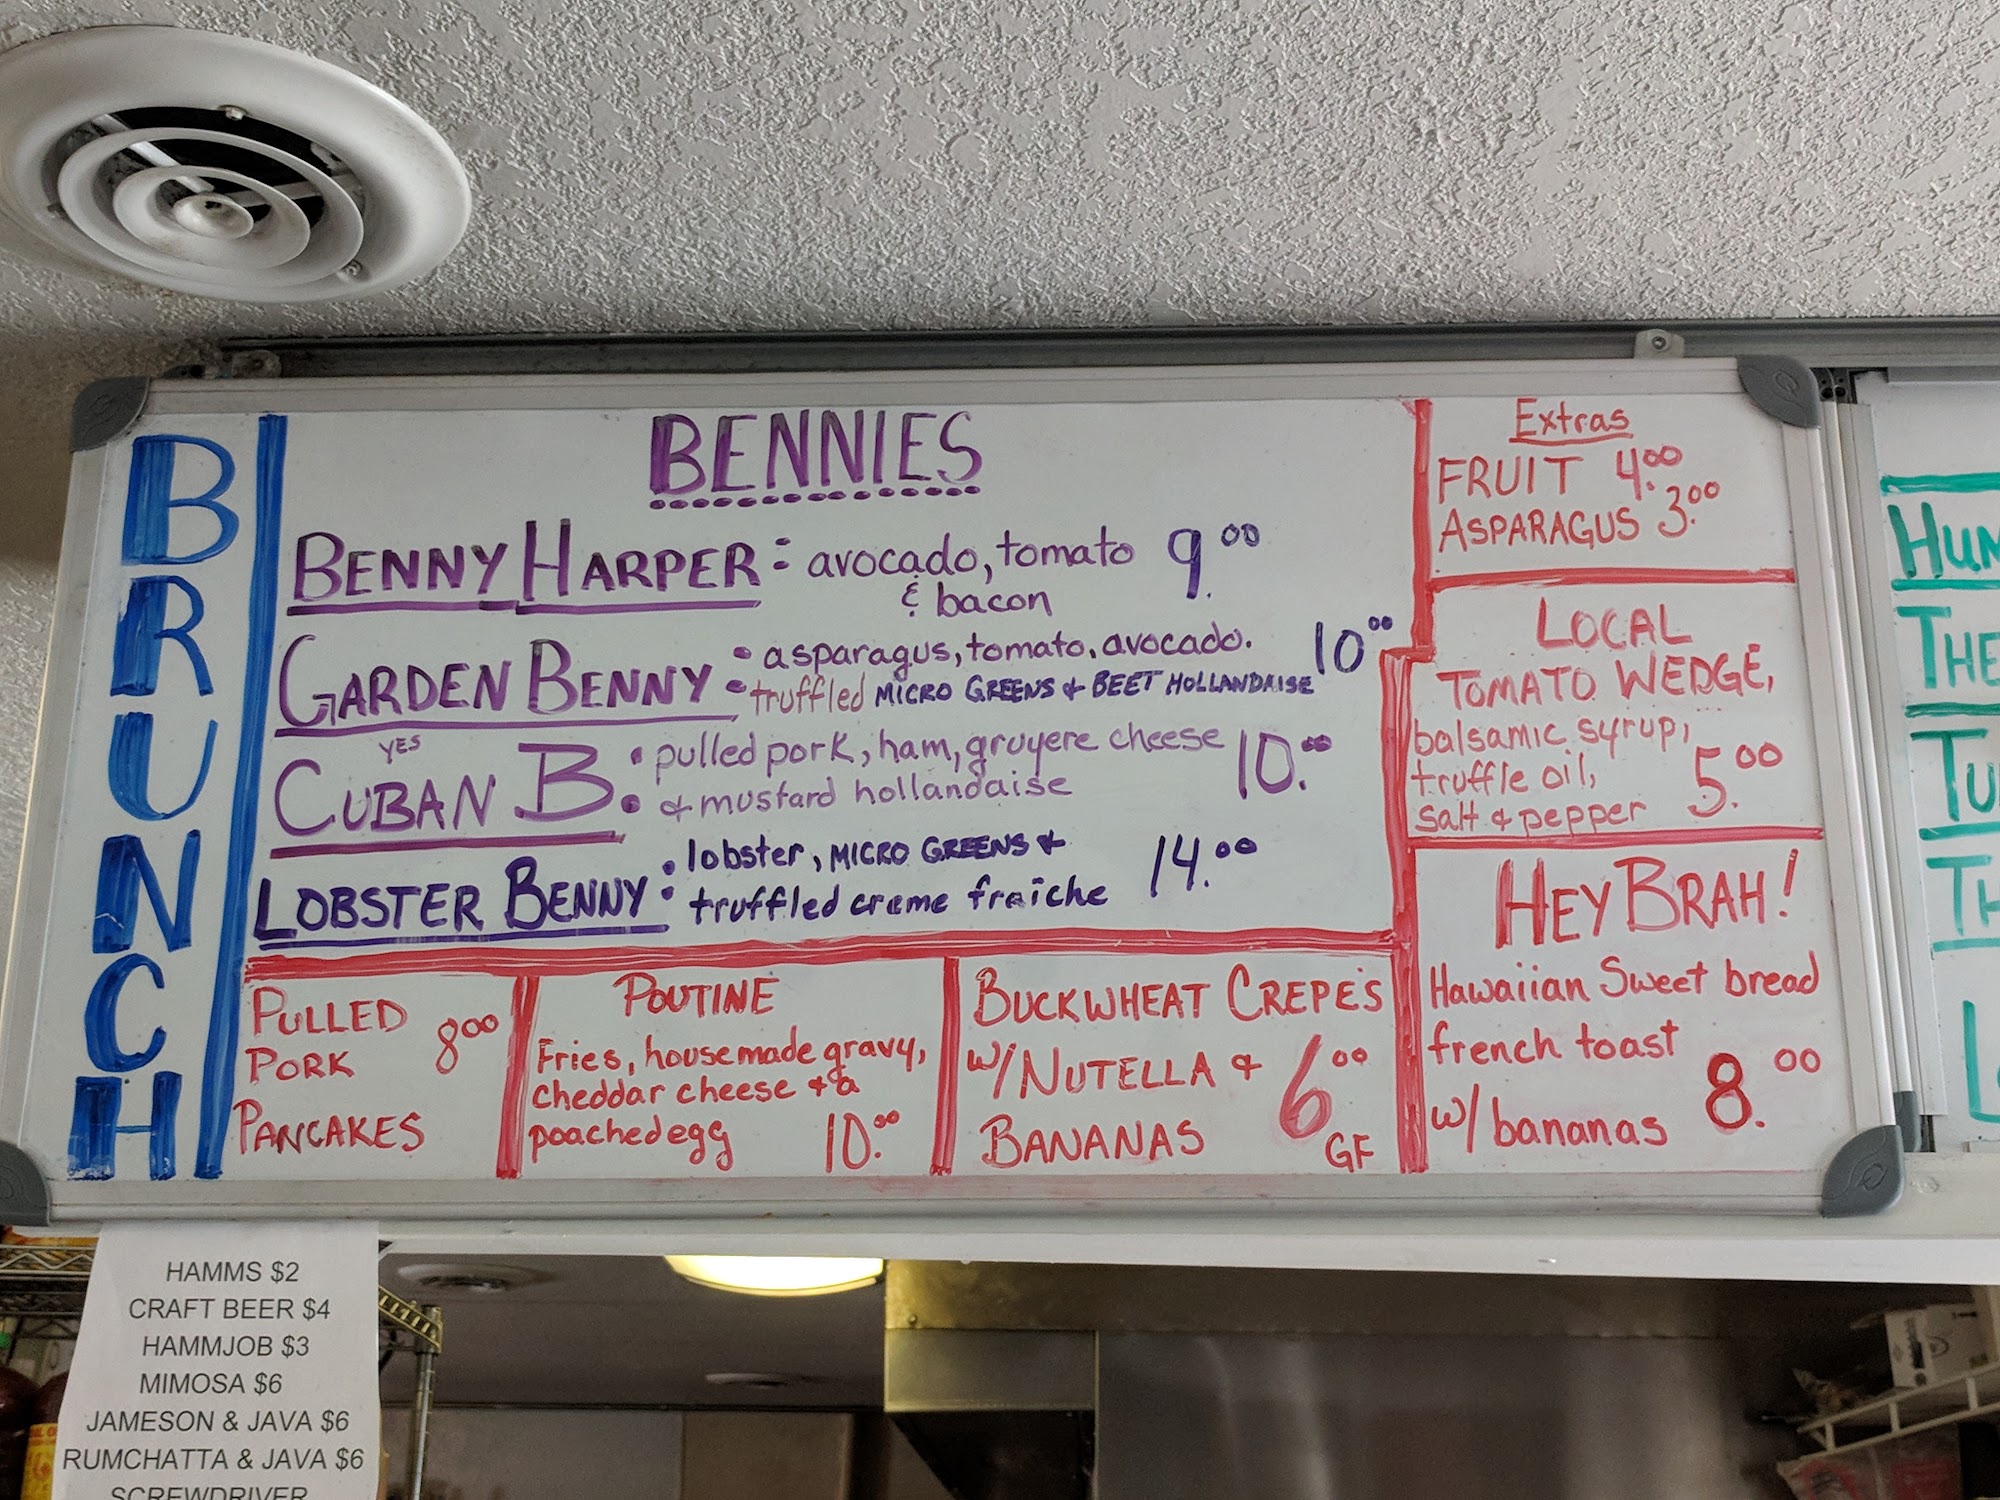 BRUNCH
BENNIES
BENNY HARPER: avocado, tomato 9.00
& bacon
GARDEN BENNY: asparagus, tomato, avocado. 10.00
truffled MICRO GREENS & BEET HOLLANDAISE
YES
CUBAN B.: pulled pork, ham, gruyere cheese 10.00
& mustard hollandaise
LOBSTER BENNY: lobster, MICRO GREENS & 14.00
truffled creme fraiche
Extras
FRUIT 4.00
ASPARAGUS 3.00
LOCAL
TOMATO WEDGE,
balsamic syrup,
truffle oil, 5.00
salt & pepper
HEY BRAH!
Hawaiian Sweet bread
french toast
w/ bananas 8.00
PULLED 8.00
PORK
PANCAKES
POUTINE
Fries, housemade gravy,
cheddar cheese & a
poached egg 10.00
BUCKWHEAT CREPE'S
w/ NUTELLA & 6.00
BANANAS GF
HUM
THE
TU
TH
L
HAMMS $2
CRAFT BEER $4
HAMMJOB $3
MIMOSA $6
JAMESON & JAVA $6
RUMCHATTA & JAVA $6
SCREWDRIVER